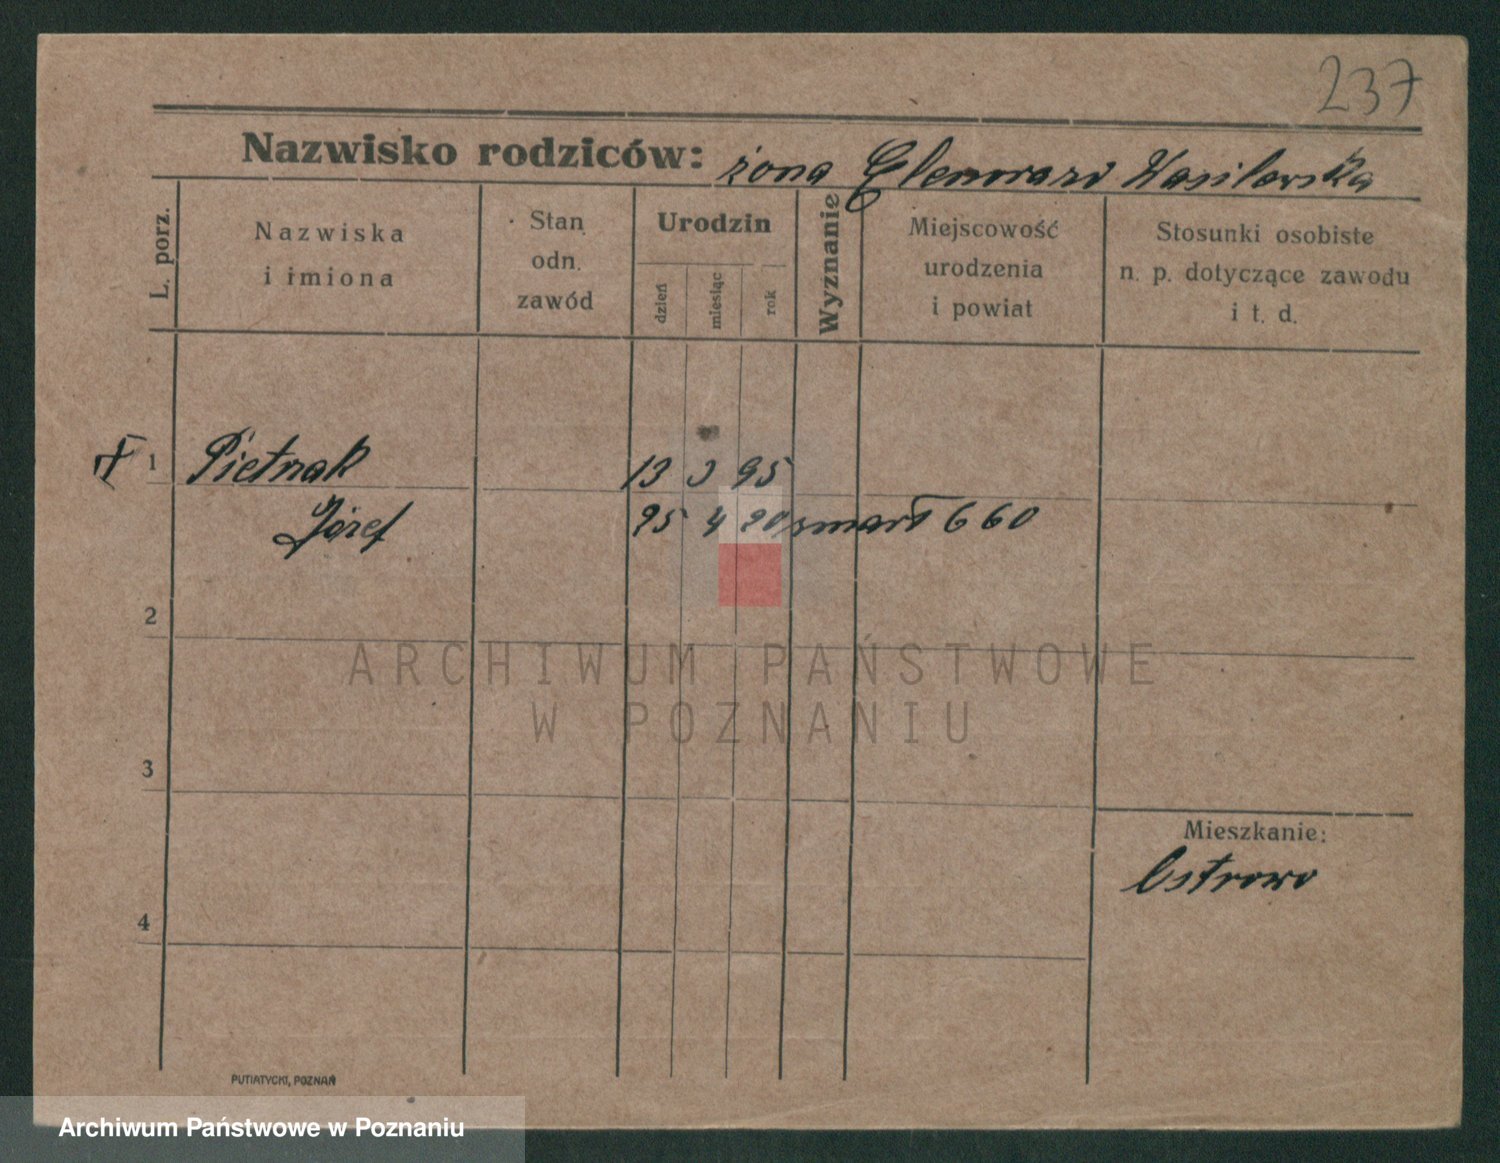 237
Nazwisko rodziców: żona Wasilewska
L. porz.
Nazwiska i imiona
Stan odn. zawód
Urodzin
dzień
miesiąc
rok
Wyznanie
Miejscowość urodzenia i powiat
Stosunki osobiste n. p. dotyczące zawodu i t. d.
1 Pietrzak 13 3 95
Józef 25 4 20 zmarł 6 60
2
ARCHIWUM PAŃSTWOWE
W POZNANIU
3
Mieszkanie:
Ostrowo
4
PUTIATYCKI, POZNAŃ
Archiwum Państwowe w Poznaniu